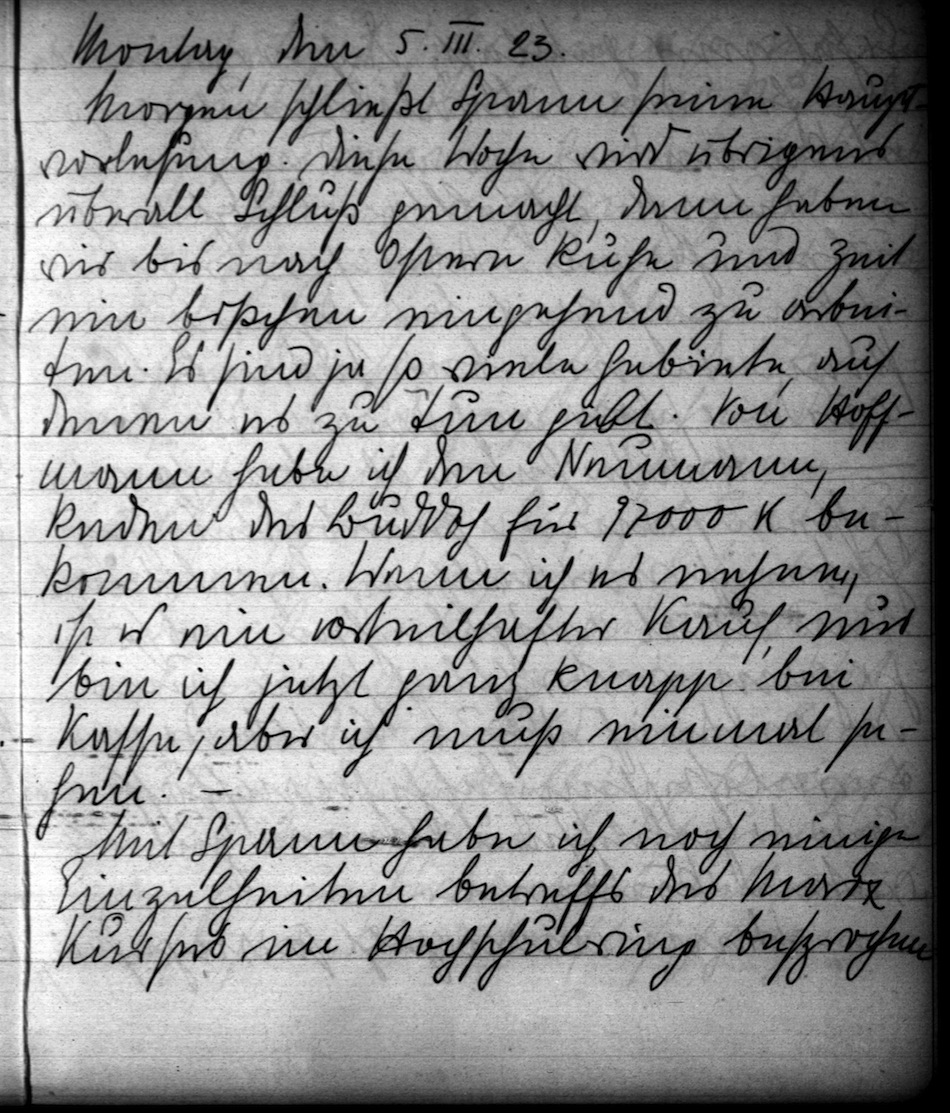 Montag, den 5. III. 23.
Morgen schließt Spann seine Haupt-
vorlesung. Diese Woche wird übrigens
überall Schluß gemacht, dann haben
wir bis nach Ostern Ruhe und Zeit
ein bißchen eingehend zu arbei-
ten. Es sind ja so viele Gebiete, auf
denen es zu tun gibt. Von Hoff-
mann habe ich den Neumann,
Reden des Buddha für 97000 K be-
kommen. Wenn ich es nehme,
ist es ein vorteilhafter Kauf, nur
bin ich jetzt ganz knapp bei
Kasse, aber ich muß einmal se-
hen. –
Mit Spann habe ich noch einige
Einzelheiten betreffs des Marx
Kurses im Hochschulring besprochen